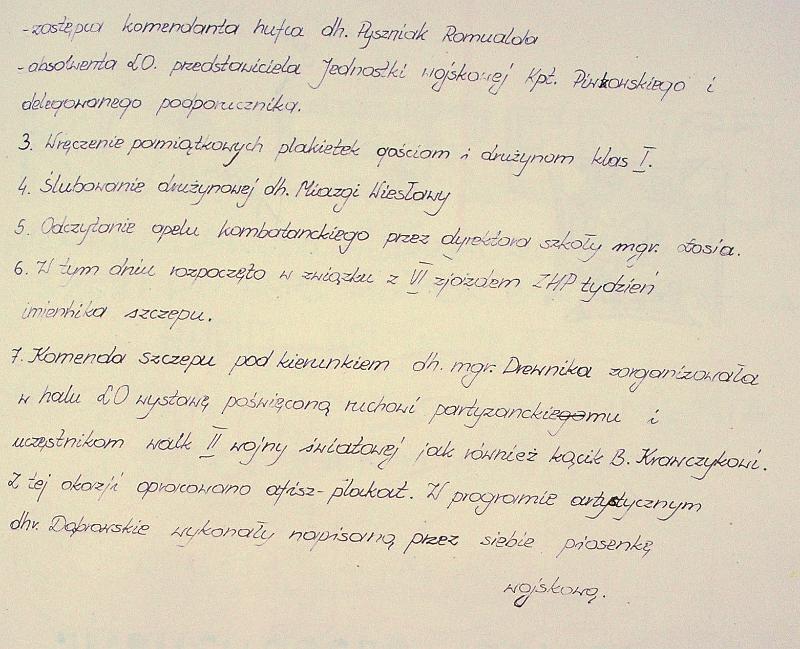 -zastępca komendanta hufca dh. Pyszniak Romualda
-absolwenta LO. przedstawiciela Jednostki wojskowej Kpt. Piwkowskiego i
delegowanego podporucznika.
3. Wręczenie pamiątkowych plakietek gościom i drużynom klas I.
4. Ślubowanie drużynowej dh. Miazgi Wiesławy
5. Odczytanie apelu kombatanckiego przez dyrektora szkoły mgr. Łosia.
6. W tym dniu rozpoczęto w związku z VI zjazdem ZHP tydzień
imiennika szczepu.
7. Komenda szczepu pod kierunkiem dh. mgr. Drewnika zorganizowała
w halu LO wystawę poświęconą ruchowi partyzanckiegomu i
uczęstnikom walk II wojny światowej jak również kącik B. Krawczykowi.
Z tej okazji opracowano afisz-plakat. W programie artystycznym
dhr. Dąbrowskie wykonały napisaną przez siebie piosenkę
wojskową.